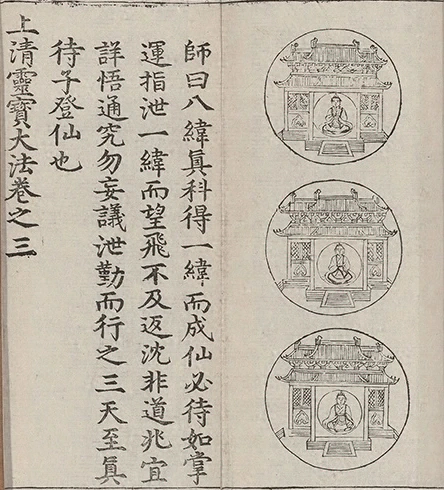 師曰八緯眞科得一緯而成仙必待如掌
運指泄一緯而望飛不及返沈非道兆宜
詳悟通究勿妄議泄勤而行之三天至眞
待子登仙也
上清靈寶大法卷之三